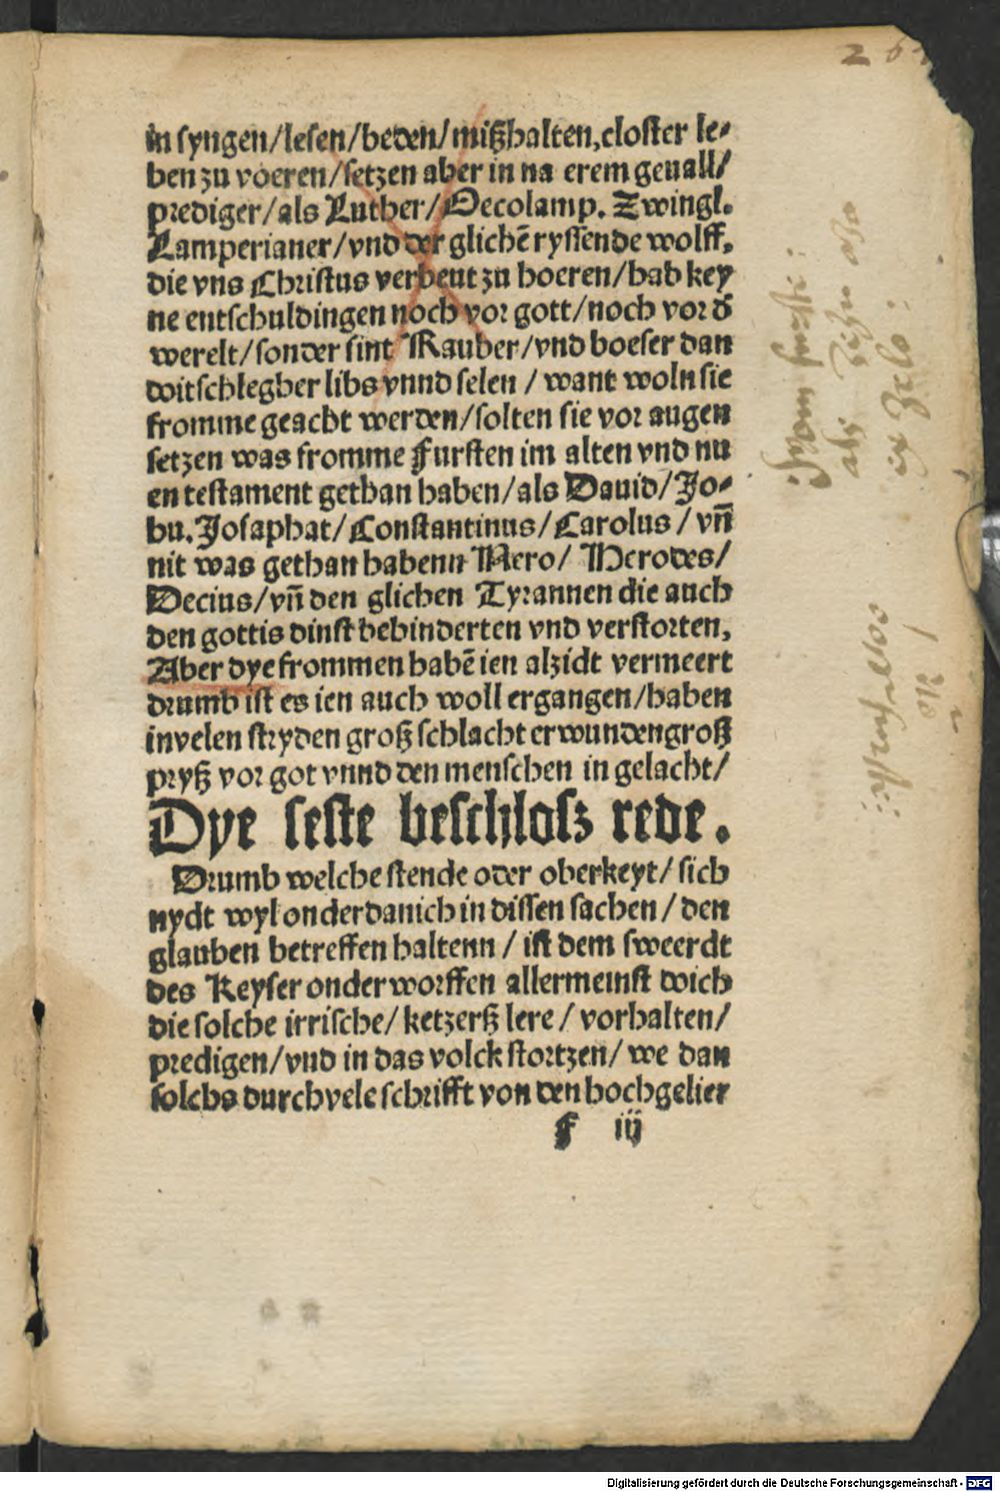 in syngen/lesen/beden/mißhalten,closter le⸗
ben zu voeren/setzen aber in na erem geuall/
prediger/als Luther/Oecolamp. Zwingl.
Lamperianer/vnd der glichē ryssende wolff,
die vns Christus verbeut zu hoeren/hab key
ne entschuldingen noch vor gott/noch vor
werelt/sonder sint Rauber/vnd boeser dan
doitschlegher libs vnnd selen / want woln sie
fromme geacht werden/solten sie vor augen
setzen was fromme Fursten im alten vnd nu
en testament gethan haben/als Dauid/Jo⸗
hu. Josaphat/ Constantinus/ Carolus / vñ
nit was gethan habenn Nero/ Herodes/
Decius/vñ den glichen Tyrannen die auch
den gottis dinst behinderten vnd verstorten,
Aber dye frommen habē ien alzidt vermeert
drumb ist es ien auch woll ergangen/haben
invelen stryden groß schlacht erwunden groß
pryß vor got vnnd den menschen in gelacht/
Dye seste beschlosz rede.
Drumb welche stende oder oberkeyt/ sich
nydt wyl onderdanich in dissen sachen / den
glauben betreffen haltenn / ist dem sweerdt
des Keyser onderworffen allermeinst doich
die solche irrische/ ketzerß lere / vorhalten/
predigen/vnd in das volck stortzen/ we dan
solchs durch vele schrifft von den hochgelier
f iij
Digitalisierung gefördert durch die Deutsche Forschungsgemeinschaft - DFG